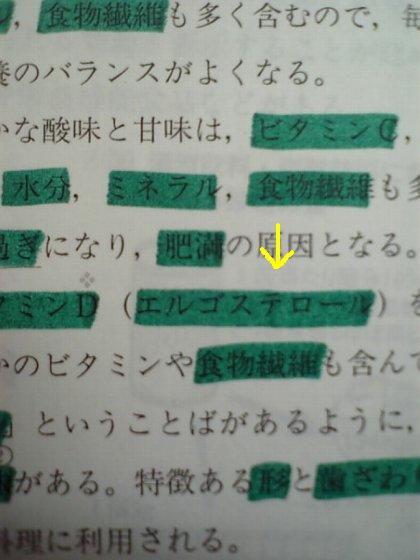 、食物繊維も多く含むので，毎
養のバランスがよくなる。
かな酸味と甘味は，ビタミンC，
水分，ミネラル，食物繊維も多
過ぎになり，肥満の原因となる。
タミンD（エルゴステロール）を
かのビタミンや食物繊維も含んで
ということばがあるように，
がある。特徴ある形と歯ざわり
料理に利用される。